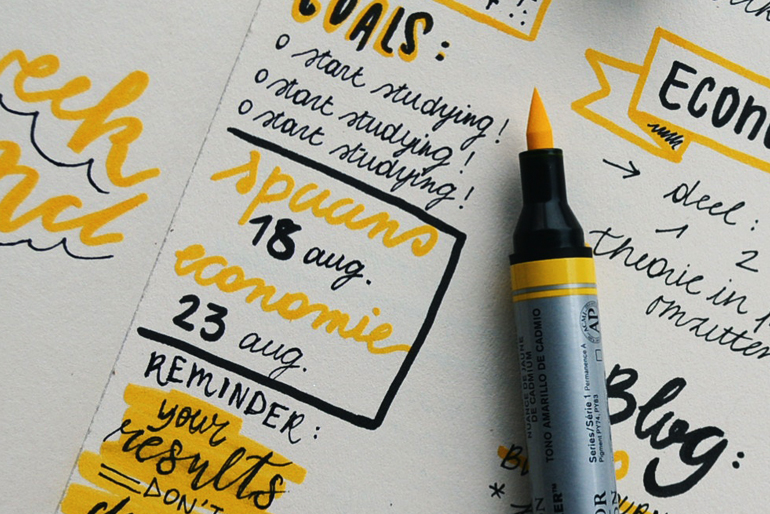 eek
GOALS:
o start studying!
o start studying!
o start studying!
spaans
18 aug.
economie
23 aug.
REMINDER:
your
results
= DON'T
ECON
→ deel:
1 2
theorie in
omzetten
Blog:
*
NUANCE DE JAUNE
DE CADMIUM
TONO AMARILLO DE CADMIO
Series/Série 1 Permanence A
Pigment PY74, PY83
AP